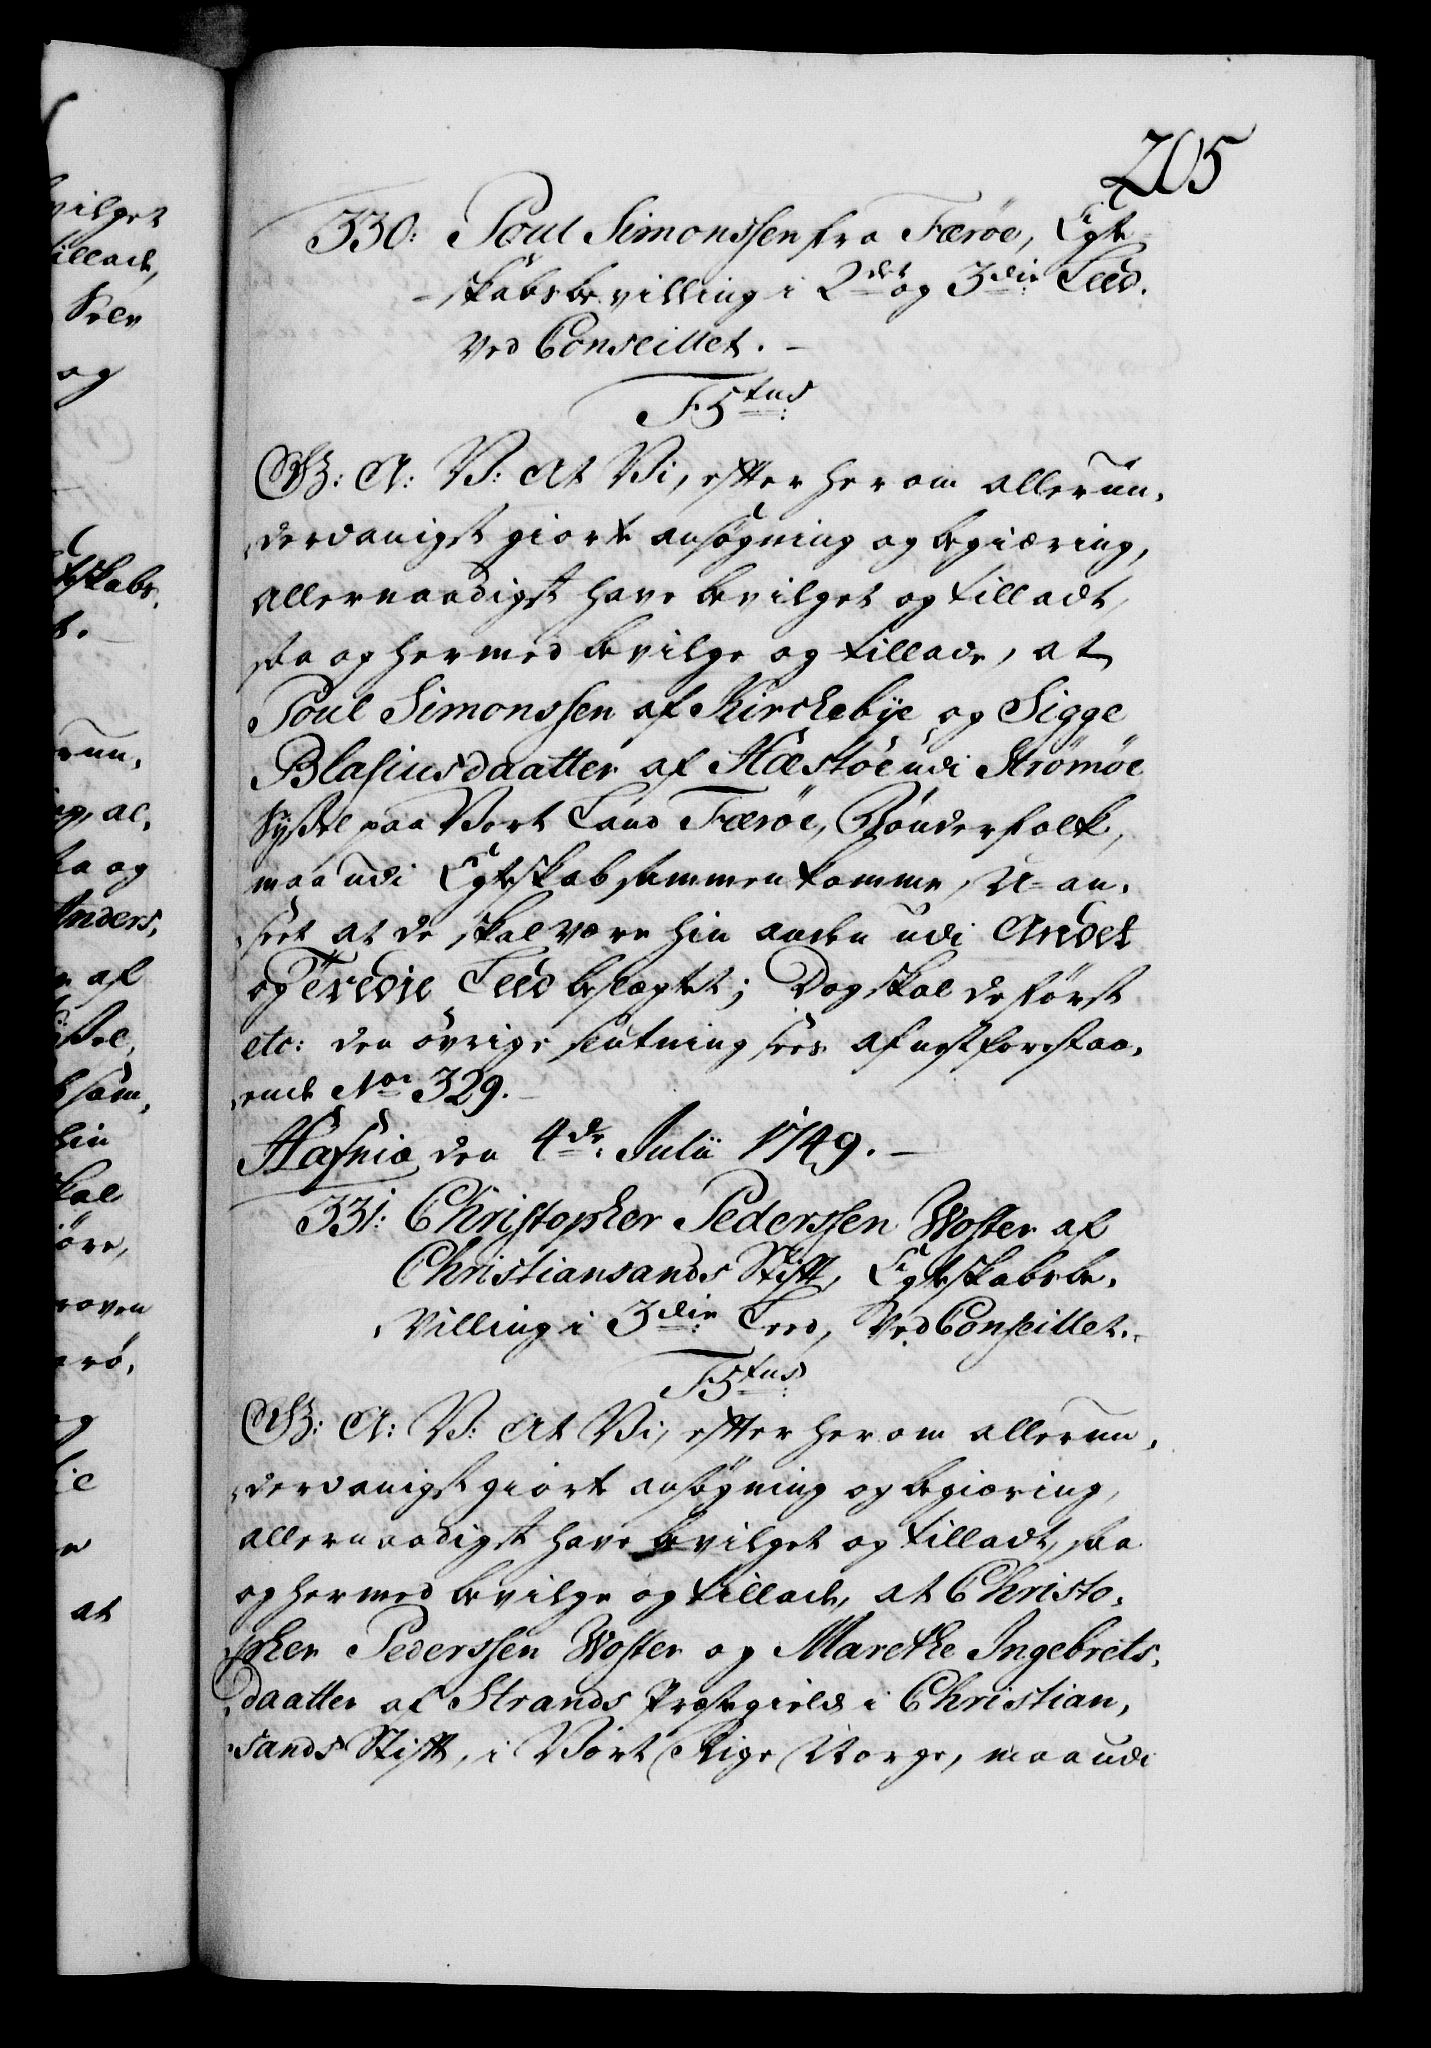 205
330. Poul Simonssen fra Færøe, Egte
skabsbevilling i 2det og 3die Leed.
Ved Conseillet.
F5tus
G: A: V: At Vi, efter herom allerun,
dervanigst giorte ansøgning og begiæring,
allernaadigst have bevilget og tilladt,
saa og hermed bevilge og tillade, at
Poul Simonssen af Kirckebÿe og Sigge
Blasiusdaatter af Hæstöe udi Strömöe
Sÿssel paa Vort Land Færöe, Bönderfolk,
maa udi Egteskab sammenkomme, U-an,
seet at de skal være hin anden udi Andet
og Tredie Leed beslægtet; Dog skal de först
etc: den övrige slutning sees af nestforestaa,
ende No: 329.
Hafniæ den 4de Julii 1749.
331. Christopher Pederssen Woster af
Christiansands Stift, Egteskabsbe,
villing i 3die Leed, Ved Conseillet.
F5tus
G: A: V: At Vi, efter herom allerun,
dervanigst giorte ansøgning og begiæring,
allernaadigst have bevilget og tilladt, saa
og hermed bevilge og tillade, at Christo,
pher Pederssen Woster og Marethe Ingebrets,
daatter af Strands Præstegield i Christian,
sands Stift, i Vort Rige Norge, maa udi
vilget
tillade,
og
skabs,
run,
al,
saa og
Anders,
af
sam,
hin
skal
at